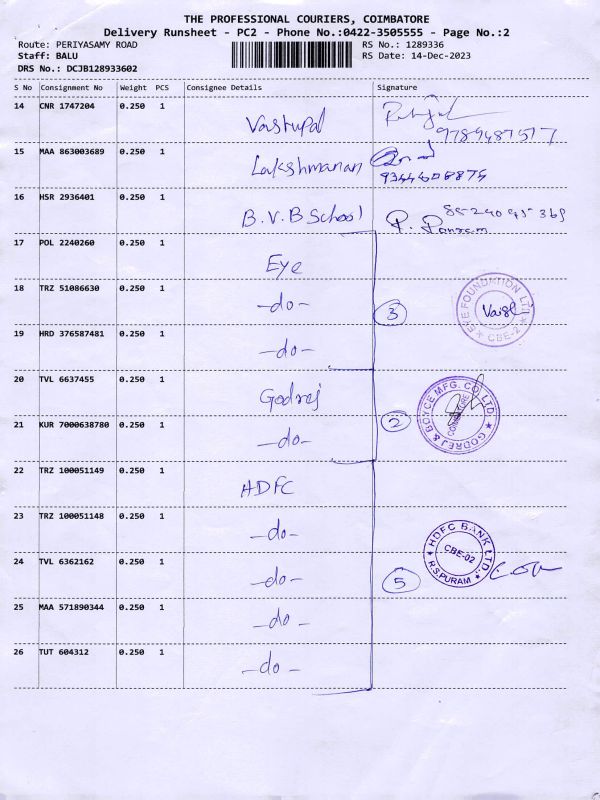 THE PROFESSIONAL COURIERS, COIMBATORE
Delivery Runsheet - PC2 - Phone No.:0422-3505555 - Page No.:2
Route: PERIYASAMY ROAD RS No.: 1289336
Staff: BALU RS Date: 14-Dec-2023
DRS No.: DCJB128933602
S No Consignment No Weight PCS Consignee Details Signature
14 CNR 1747204 0.250 1 Vastupal
15 MAA 863003689 0.250 1 Lakshmanan
16 HSR 2936401 0.250 1 B.V.B School
17 POL 2240260 0.250 1 Eye
18 TRZ 51086630 0.250 1 -do- 3 EYE FOUNDATION LTD CBE-2
19 HRD 376587481 0.250 1 -do-
20 TVL 6637455 0.250 1 Godrej
21 KUR 7000638780 0.250 1 -do- 2 GODREJ & BOYCE MFG. CO. LTD. COIMBATORE
22 TRZ 100051149 0.250 1 HDFC
23 TRZ 100051148 0.250 1 -do-
24 TVL 6362162 0.250 1 -do- 5 HDFC BANK LTD. CBE-02 R.S.PURAM
25 MAA 571890344 0.250 1 -do-
26 TUT 604312 0.250 1 -do-